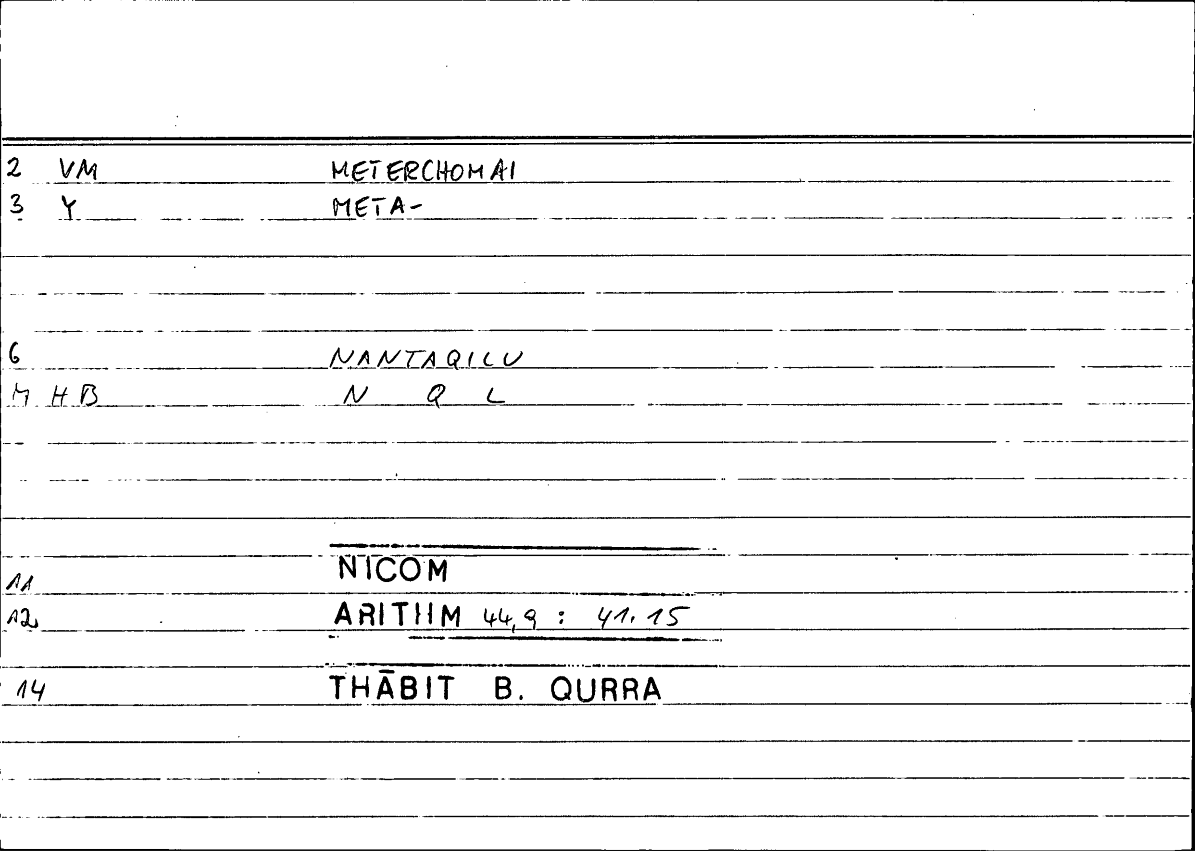 2 VM METERCHOMAI
3 Y META-
6 NANTAQILU
M HB N Q L
11 NICOM
12 ARITHM 44,9 : 41.15
14 THĀBIT B. QURRA